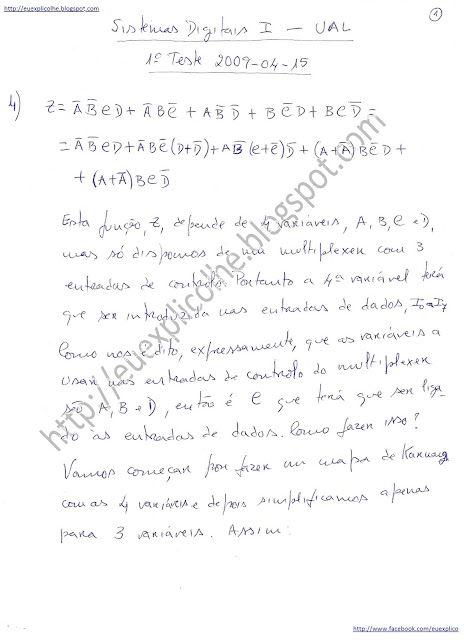 http://euexplicolhe.blogspot.com
1
Sistemas Digitais I — UAL
1º Teste 2009-04-15
4) Z = A̅ B̅ C D + A̅ B C̅ + A B̅ D̅ + B C̅ D + B C D̅ =
= A̅ B̅ C D + A̅ B C̅ (D+D̅) + A B̅ (C+C̅) D̅ + (A+A̅) B C̅ D +
+ (A+A̅) B C D̅
Esta função, Z, depende de 4 variáveis, A, B, C e D,
mas só dispomos de um multiplexer com 3
entradas de controlo. Portanto a 4ª variável terá
que ser introduzida nas entradas de dados, I0 a I7
Como nos é dito, expressamente, que as variáveis a
usar nas entradas de controlo do multiplexer
são A, B e D, então é C que terá que ser liga-
do às entradas de dados. Como fazer isso?
Vamos começar por fazer um mapa de Karnaugh
com as 4 variáveis e depois simplificamos apenas
para 3 variáveis. Assim:
http://euexplicolhe.blogspot.com
http://www.facebook.com/euexplico